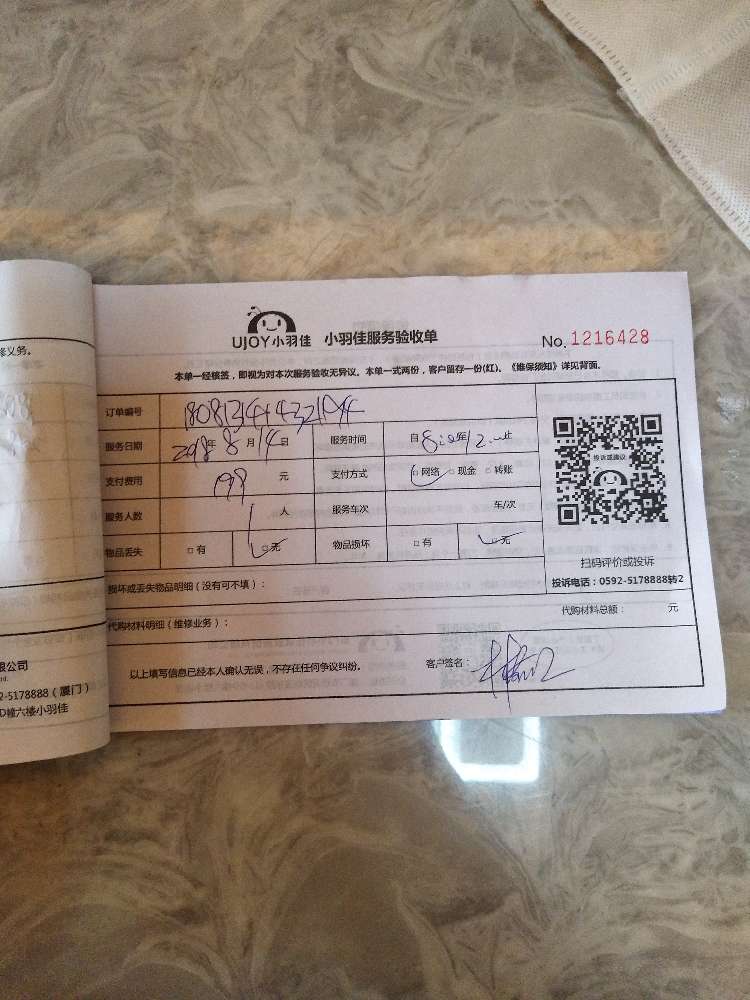 修义务。
UJOY小羽佳 小羽佳服务验收单 No. 1216428
本单一经核签，即视为对本次服务验收无异议。本单一式两份，客户留存一份(红)。《维保须知》详见背面。
订单编号
服务日期 2018年 8月 14日 服务时间 自
支付费用 198 元 支付方式 网络 现金 转账
服务人数 1 人 服务车次 车/次
物品丢失 有 无 物品损坏 有 无
投诉或建议
扫码评价或投诉
投诉电话：0592-5178888转2
损坏或丢失物品明细（没有可不填）：
代购材料明细（维修业务）： 代购材料总额： 元
以上填写信息已经本人确认无误，不存在任何争议纠纷。 客户签名：
限公司
td.
92-5178888（厦门）
D幢六楼小羽佳